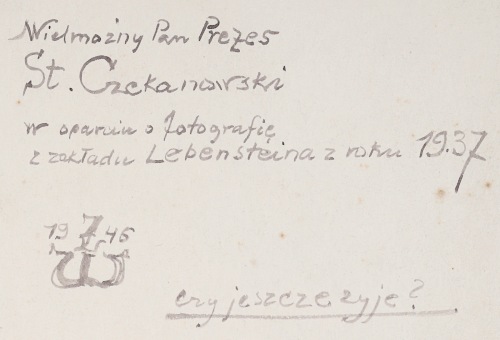 Wielmożny Pan Prezes
St. Czekanowski
w oparciu o fotografię
z zakładu Lebensteina z roku 1937
19 7 46
czy jeszcze żyje?